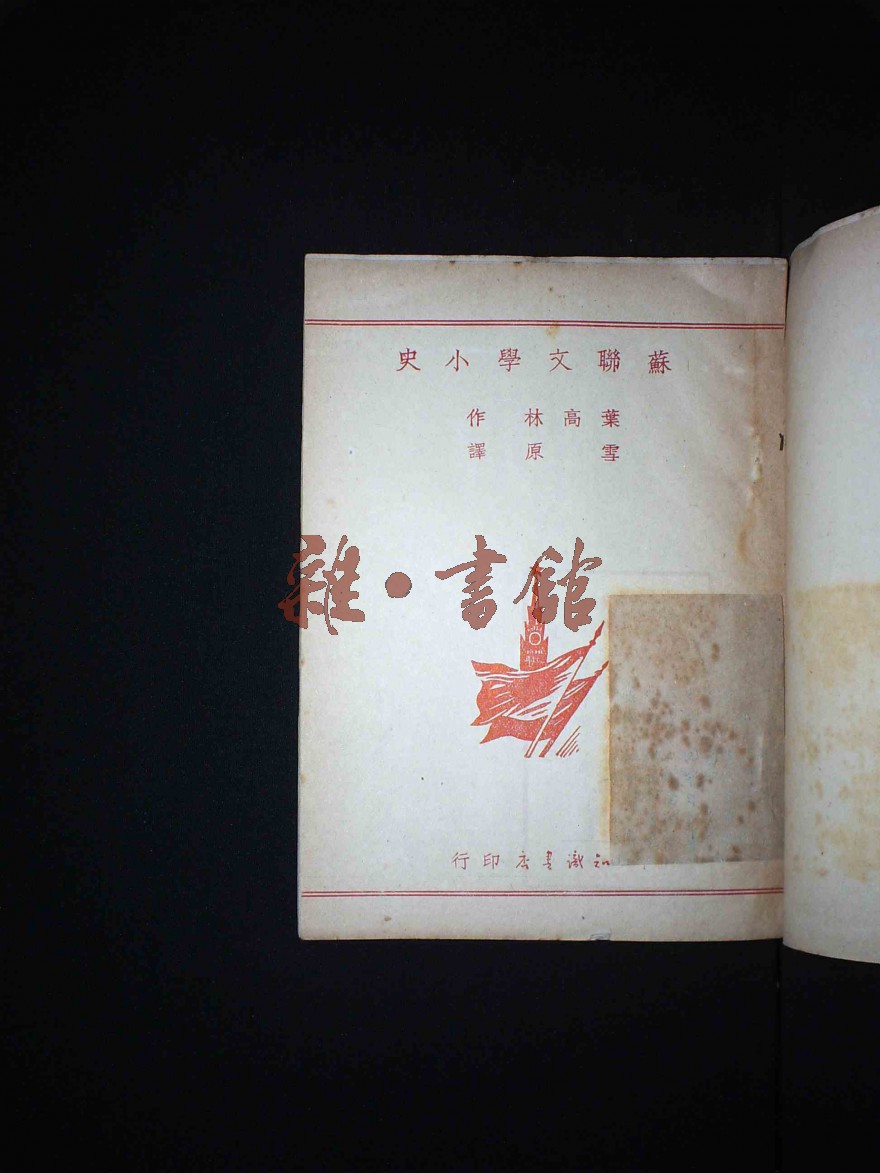 蘇聯文學小史
葉高林 作
雪原 譯
雜·書館
識書店印行